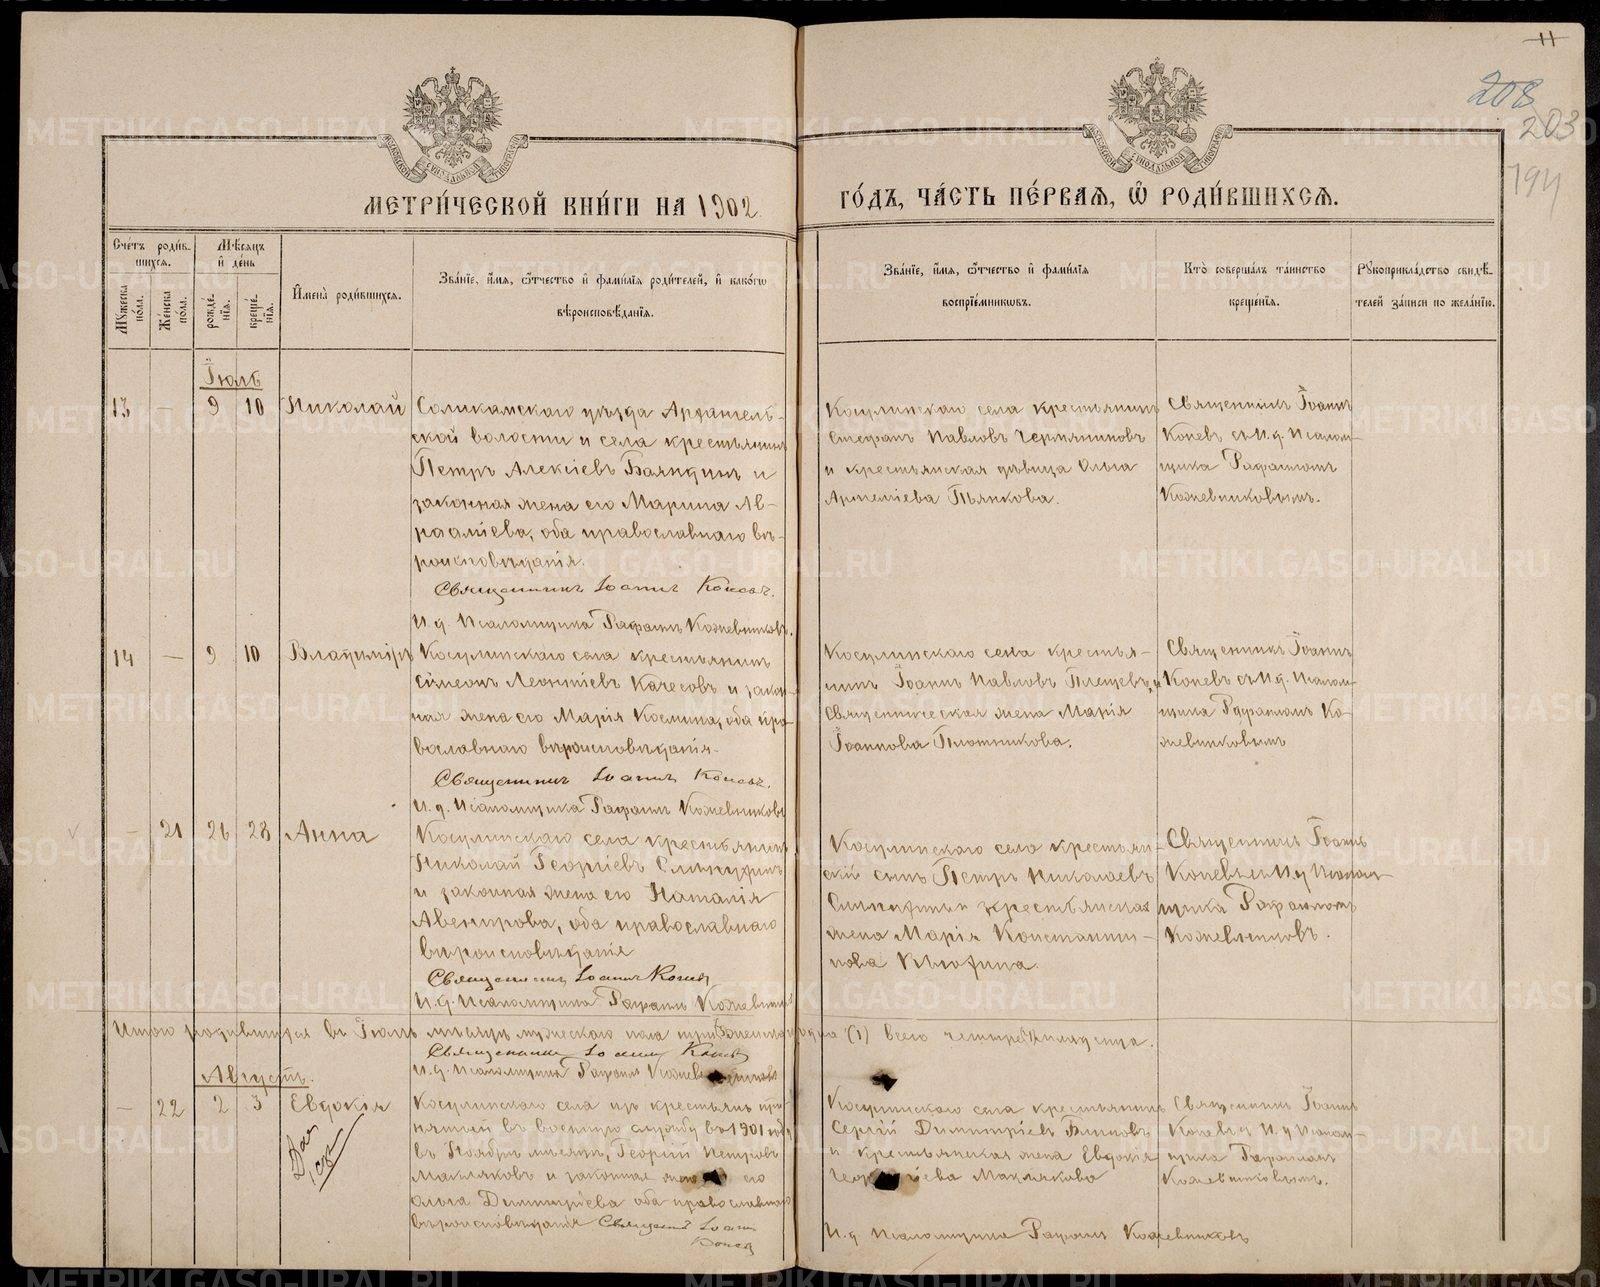 11
208
203
194
МЕТРИ́ЧЕСКОЙ КНИ́ГИ НА 1902
ГО́ДЪ, ЧА́СТЬ ПЕ́РВАЯ, Ѽ РОДИ́ВШИХСЯ.
Сче́тъ роди́вшихся.
Мѣ́сяцъ и҆ де́нь
Му́жеска по́ла.
Же́нска по́ла.
рожде́нїя.
креще́нїя.
И҆мена̀ роди́вшихся.
Зва́нїе, и҆́мя, ѻ҆́тчество и҆ фами́лїя роди́телей, и҆ како́гѡ
вѣроисповѣ́данїя.
Зва́нїе, и҆́мя, ѻ҆́тчество и҆ фами́лїя
воспрїе́мниковъ.
Кто̀ соверша́лъ та́инство
креще́нїя.
Рꙋкоприкла́дство свидѣ́телей за́писи по жела́нїю.
Іюль
13 — 9 10 Николай
Соликамскаго уѣзда Архангель-
ской волости и села крестьянинъ
Петръ Алексіевъ Баяндинъ и
законная жена его Марина Ав-
рааміева, оба православнаго вѣ-
роисповѣданія.
Священникъ Іоаннъ Коневъ.
И. д. Псаломщика Рафаилъ Кожевниковъ.
Косулинскаго села крестьянинъ
Стефанъ Павловъ Чермяниновъ
и крестьянская дѣвица Ольга
Артеміева Пьянкова.
Священникъ Іоаннъ
Коневъ съ И. д. Псалом-
щика Рафаиломъ
Кожевниковымъ.
14 — 9 10 Владиміръ
Косулинскаго села крестьянинъ
Сімеонъ Леонтіевъ Качесовъ и закон-
ная жена его Марія Космина, оба пра-
вославнаго вѣроисповѣданія.
Священникъ Іоаннъ Коневъ.
И. д. Псаломщика Рафаилъ Кожевниковъ
Косулинскаго села крестья-
нинъ Іоаннъ Павловъ Плещевъ и
священническая жена Марія
Іоаннова Плотникова.
Священникъ Іоаннъ
Коневъ съ И. д. Псалом-
щика Рафаиломъ Ко-
жевниковымъ
— 21 26 28 Анна
Косулинскаго села крестьянинъ
Николай Георгіевъ
и законная жена его Наталія
Авенирова, оба православнаго
вѣроисповѣданія
Священникъ Іоаннъ Коневъ
И. д. Псаломщика Рафаилъ Кожевниковъ
Косулинскаго села крестьян-
скій сынъ Петръ Николаевъ
и крестьянская
жена Марія Константи-
нова
Священникъ Іоаннъ
Коневъ съ И д Псалом-
щика Рафаиломъ
Кожевниковъ.
Итого родившихся въ Іюлѣ мѣсяцѣ мужескаго пола три женскаго одна (1) всего четыре
Священникъ Іоаннъ Коневъ
И. д. Псаломщика Рафаилъ Кожевниковъ
Августъ.
— 22 2 3 Евдокія
Косулинскаго села изъ крестьянъ при-
нятый въ военную службу въ 1901 году
въ Ноябрѣ мѣсяцѣ, Георгій Петровъ
Макляковъ и законная жена его
Ольга Димитріева оба православнаго
вѣроисповѣданія Священникъ Іоаннъ
Коневъ
Косулинскаго села крестьянинъ
Сергій Димитріевъ Блиновъ
и крестьянская жена Евдокія
Георгіева Маклякова
Священникъ Іоаннъ
Коневъ и И. д Псалом-
щика Рафаиломъ
Кожевниковымъ.
И. д Псаломщика Рафаилъ Кожевниковъ
METRIKI.GASO-URAL.RU